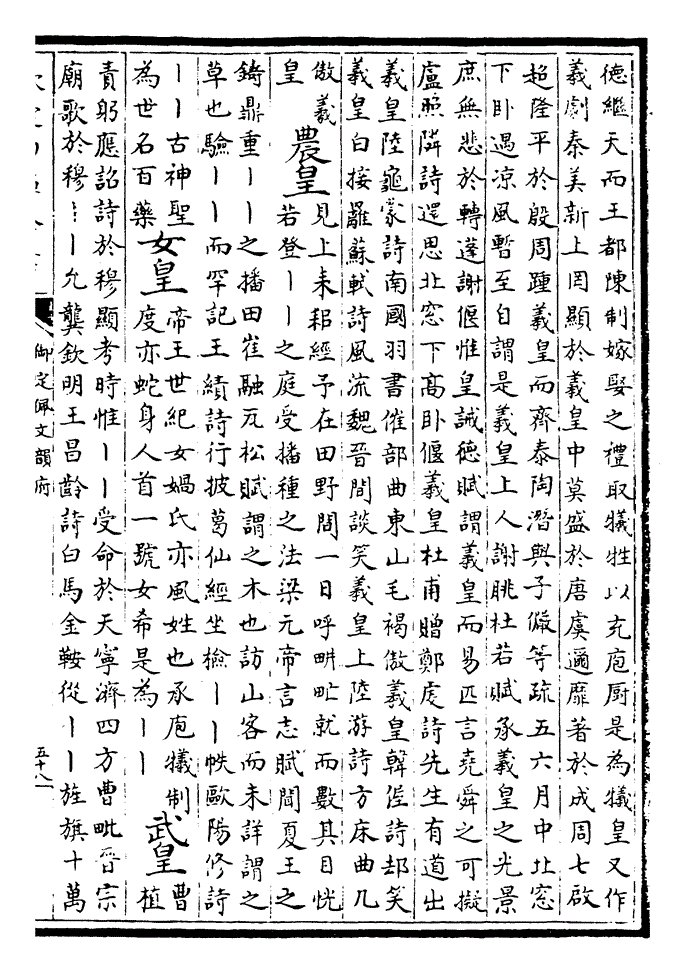 德繼天而王都陳制嫁娶之禮取犧牲以充庖厨是為犧皇又作
義劇秦美新上罔顯於羲皇中莫盛於唐虞邇靡著於成周七啟
超隆平於殷周踵羲皇而齊泰陶潛與子儼等疏五六月中北窓
下卧遇凉風暫至自謂是羲皇上人謝朓杜若賦承羲皇之光景
庶無悲於轉蓬謝偃惟皇誡德賦謂羲皇而易匹言堯舜之可擬
盧照隣詩還思北窓下高卧偃羲皇杜甫贈鄭虔詩先生有道出
羲皇陸龜蒙詩南國羽書催部曲東山毛褐傲羲皇韓偓詩却笑
羲皇白接䍦蘇軾詩風流魏晉間談笑羲皇上陸游詩方床曲几
傲羲
皇
農皇
見上耒耜經予在田野間一日呼畊甿就而數其目恍
若登丨丨之庭受播種之法梁元帝言志賦聞夏王之
鑄鼎重丨丨之播田崔融瓦松賦謂之木也訪山客而未詳謂之
草也驗丨丨而罕記王績詩行披葛仙經坐檢丨丨帙歐陽修詩
丨丨古神聖
為世名百藥
女皇
帝王世紀女媧氏亦風姓也承庖犧制
度亦蛇身人首一號女希是為丨丨
武皇
曹
植
責躬應詔詩於穆顯考時惟丨丨受命於天寧濟四方曹毗晉宗
廟歌於穆丨丨允龔欽明王昌齡詩白馬金鞍從丨丨旌旗十萬
御定佩文韻府
五十八